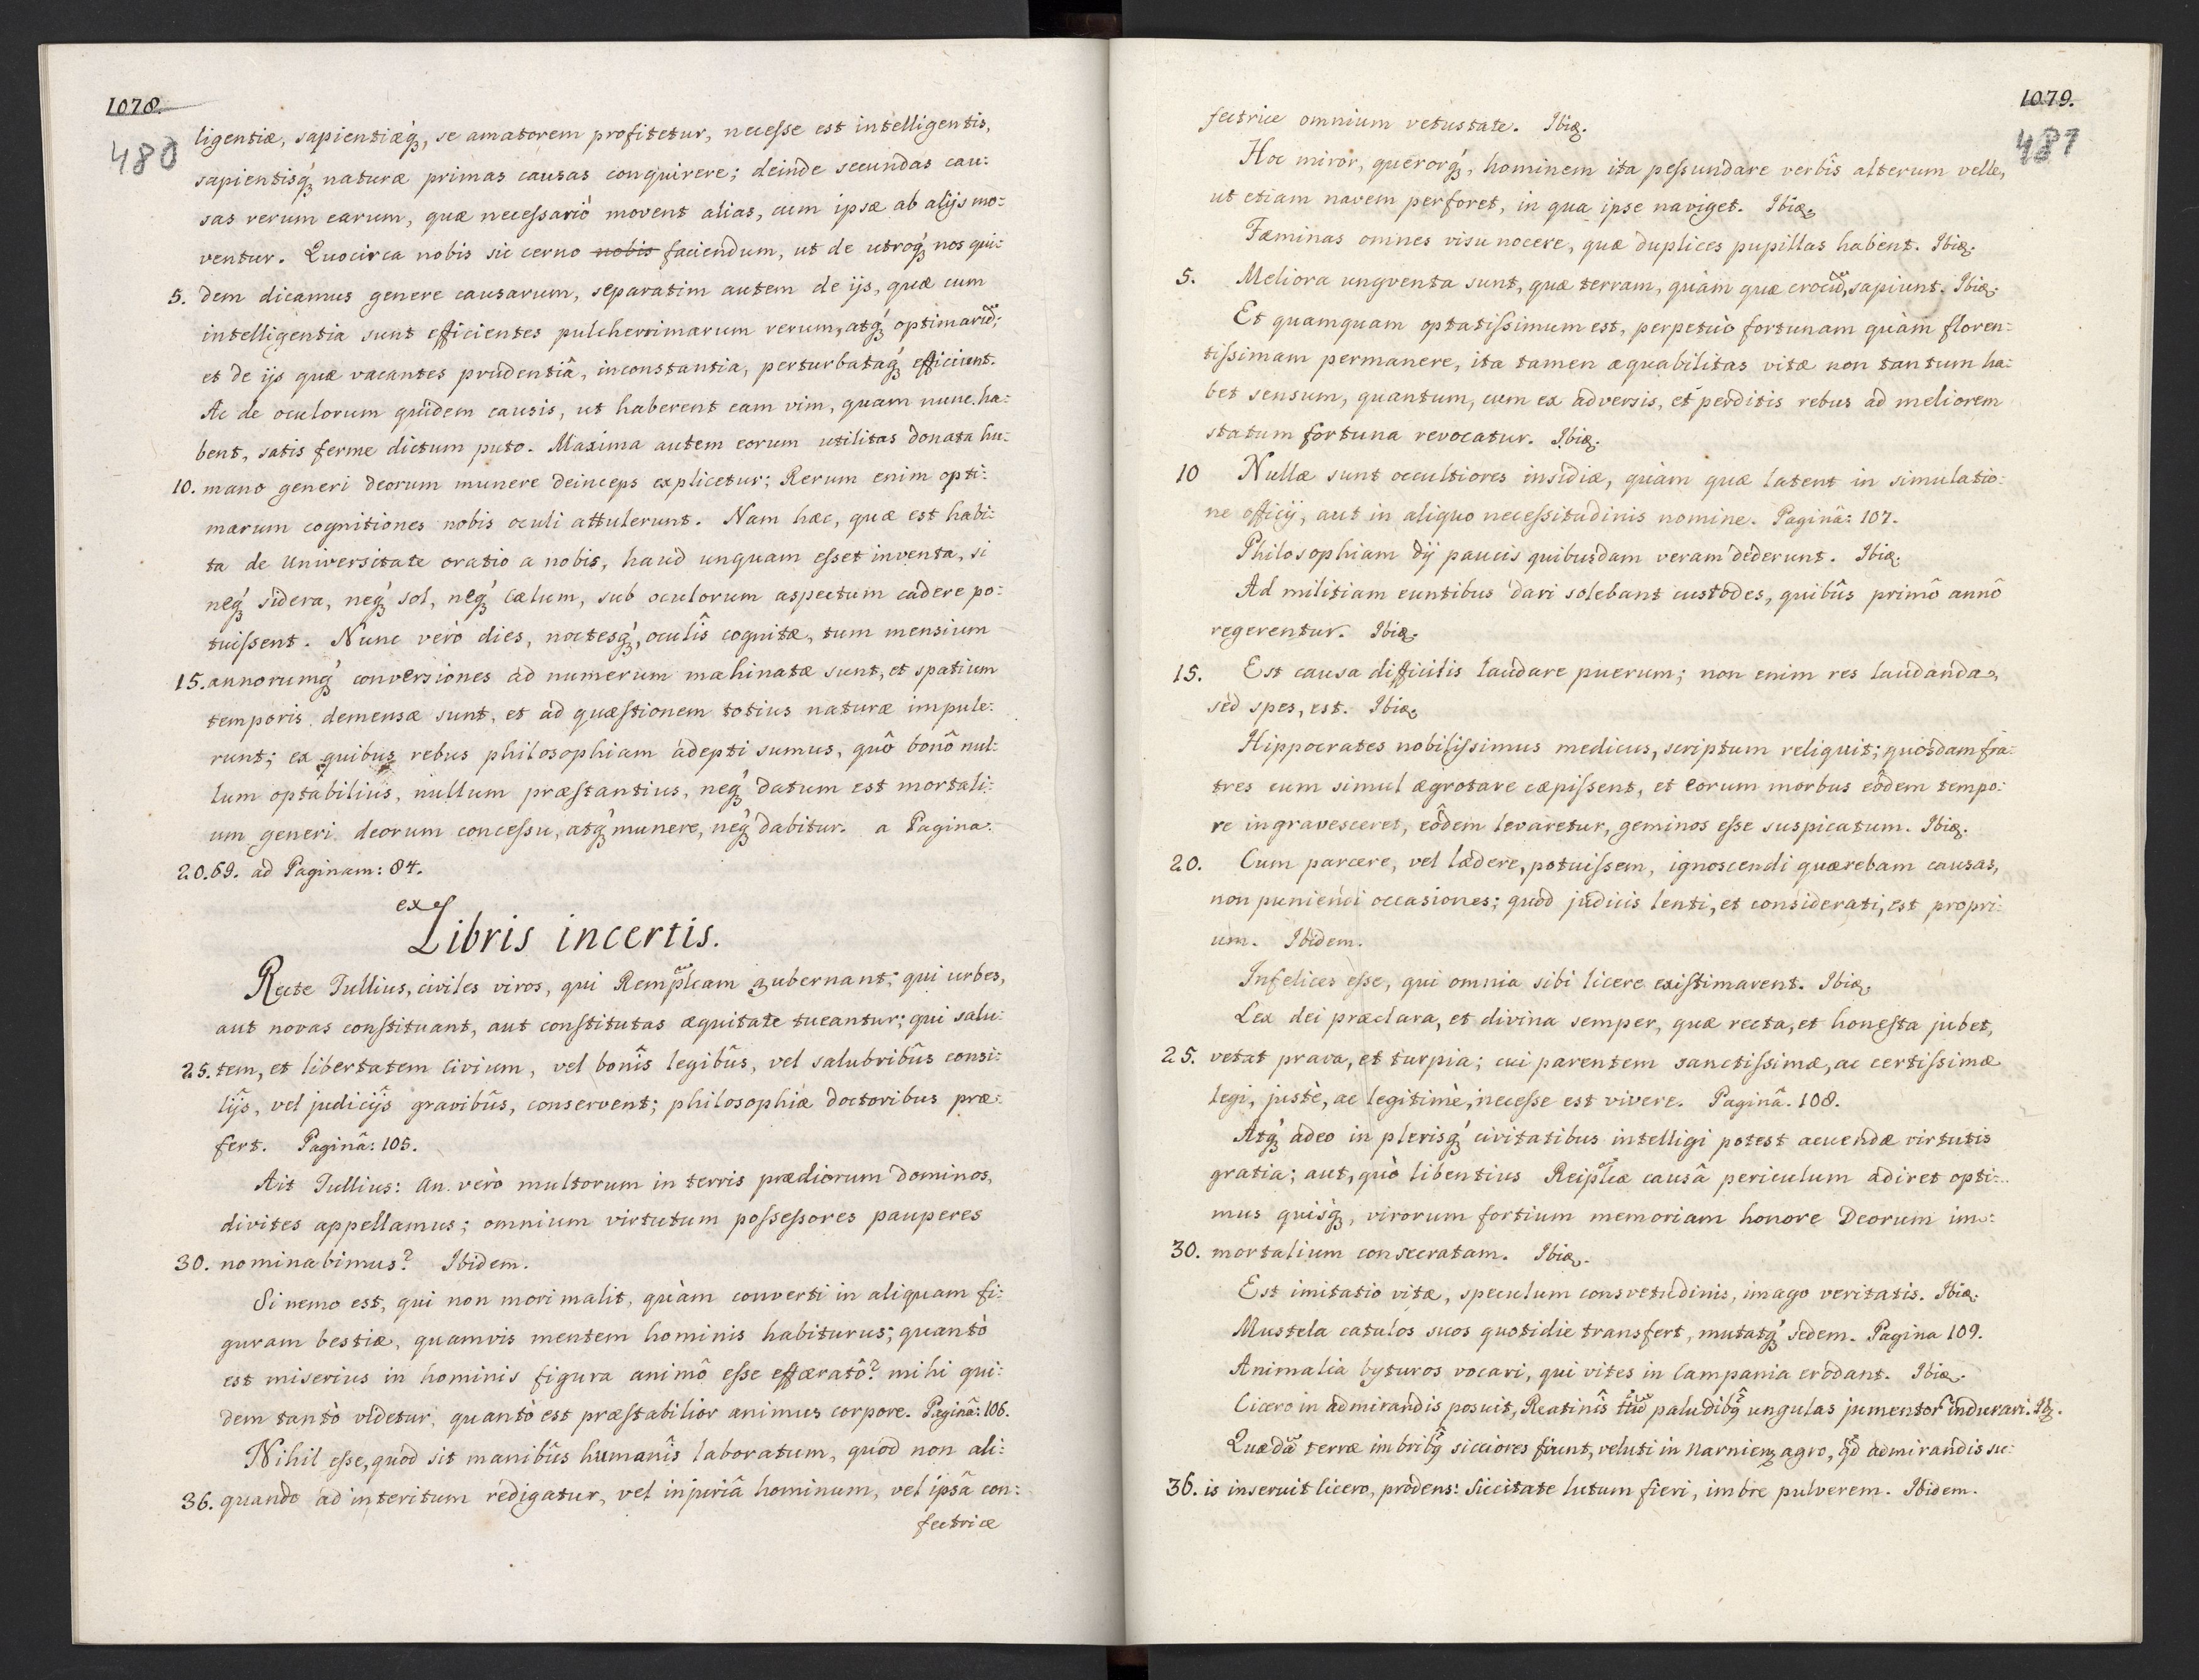 1078.
480
ligentiæ, sapientiæq́ꝫ, se amatorem profitetur, necesse est intelligentis,
sapientisq́ꝫ naturæ primas causas conquirere; deinde secundas cau:
sas rerum earum, quæ necessariò movent alias, cum ipsæ ab alijs mo:
ventur. Quocirca nobis sic cerno nobis faciendum, ut de utroq́ꝫ nos qui:
5. dem dicamus genere causarum, separatim autem de ijs, quæ cum
intelligentia sunt efficientes pulcherrimarum rerum, atq́ꝫ optimarũ;
et de ijs quæ vacantes prudentiâ, inconstantia, perturbataq́ꝫ efficiunt.
Ac de oculorum quidem causis, ut haberent eam vim, quam nunc ha:
bent, satis ferme dictum puto. Maxima autem eorum utilitas donata hu:
10. mano generi deorum munere deinceps explicetur; Rerum enim opti:
marum cognitiones nobis oculi attulerunt. Nam hæc, quæ est habi:
ta de Universitate oratio a nobis, haud unquam esset inventa, si
neq́ꝫ sidera, neq́ꝫ sol, neq́ꝫ cælum, sub oculorum aspectum cadere po:
tuissent. Nunc verò dies, noctesq́ꝫ, oculîs cognitæ, tum mensium
15. annorumq́ꝫ conversiones ad numerum mahinatæ sunt, et spatium
temporis demensæ sunt, et ad quæstionem totius naturæ impule:
runt; ex quibus rebus philosophiam adepti sumus, quô bonô nul:
lum optabilius, nullum præstantius, neq́ꝫ datum est mortali:
um generi deorum concessu, atq́ꝫ munere, neq́ꝫ dabitur. a Pagina:
20. 69. ad Paginam: 84.
ex
Libris incertis.
Recte Tullius, civiles viros, qui Rempl̃cam gubernant; qui urbes,
aut novas constituant, aut constitutas æquitate tueantur; qui salu:
25. tem, et libertatem civium, vel bonîs legibûs, vel salubribûs consi:
lijs, vel judicijs gravibûs, conservent; philosophiæ doctoribus præ:
fert. Paginâ: 105.
Ait Tullius: An verò multorum in terris prædiorum dominos,
divites appellamus; omnium virtutum possessores pauperes
30. nominabimus? Ibidem.
Si nemo est, qui non mori malit, quàm converti in aliquam fi:
guram bestiæ, quamvis mentem hominis habiturus; quantò
est miserius in hominis figura animô esse efferatô? mihi qui:
dem tantò videtur, quantò est præstabilior animus corpore. Paginâ: 106.
Nihil esse, quod sit manibûs humanîs laboratum, quod non ali:
36. quando ad interitum redigatur, vel injuriâ hominum, vel ipsâ con:
fectrice
1079.
487
fectrice omnium vetustate. Ibid.
Hoc miror, querorq́ꝫ, hominem ita pessundare verbîs alterum velle,
ut etiam navem perforet, in qua ipse naviget. Ibid.
Fæminas omnes visu nocere, quæ duplices pupillas habent. Ibid.
5. Meliora ungventa sunt, quæ terram, quàm quæ crocũ, sapiunt. Ibid.
Et quamquam optatissimum est, perpetuò fortunam quàm floren:
tissimam permanere, ita tamen æquabilitas vitæ non tantum ha:
bet sensum, quantum, cum ex adversis, et perditis rebus ad meliorem
statum fortuna revocatur. Ibid.
10 Nullæ sunt occultiores insidiæ, quàm quæ latent in simulatio:
ne officij, aut in aliquo necessitudinis nomine. Paginâ: 107.
Philosophiam dij paucis quibusdam veram dederunt. Ibid.
Ad militiam euntibus dari solebant custodes, quibûs primô annô
regerentur. Ibid.
15. Est causa difficilis laudare puerum; non enim res laudanda,
sed spes, est. Ibid.
Hippocrates nobilissimus medicus, scriptum reliquit; quosdam fra:
tres cum simul ægrotare cæpissent, et eorum morbus eôdem tempo:
re ingravesceret, eôdem levaretur, geminos esse suspicatum. Ibid.
20. Cum parcere, vel lædere, potuissem, ignoscendi quærebam causas,
non puniendi occasiones; quod judicis lenti, et considerati, est propri:
um. Ibidem.
Infelices esse, qui omnia sibi licere existimarent. Ibid.
Lex dei præclara, et divina semper, quæ recta, et honesta jubet,
25. vetat prava, et turpia; cui parentem sanctissimæ, ac certissimæ
legi, justè, ac legitimè, necesse est vivere. Paginâ. 108.
Atq́ꝫ adeo in plerisq́ꝫ civitatibus intelligi potest acuendæ virtutis
gratia; aut, quò libentius Reipl̃cæ causâ periculum adiret opti:
mus quisq́ꝫ, virorum fortium memoriam honore Deorum im:
30. mortalium consecratam. Ibid.
Est imitatio vitæ, speculum consvetudinis, imago veritatis. Ibid.
Mustela catulos suos quotidie transfert, mutatq́ꝫ sedem. Pagina 109.
Animalia byturos vocari, qui vites in Campania erodant. Ibid.
Cicero in admirandis posuit, Reatinîs paludibꝫ ungulas jumentor̃ indurari. Ib.
Quædã terræ imbribꝫ sicciores fiunt, veluti in Narnienꝫ agro, qd̃ admirandis su:
36. is inseruit Cicero, prodens: Siccitate lutum fieri, imbre pulverem. Ibidem.